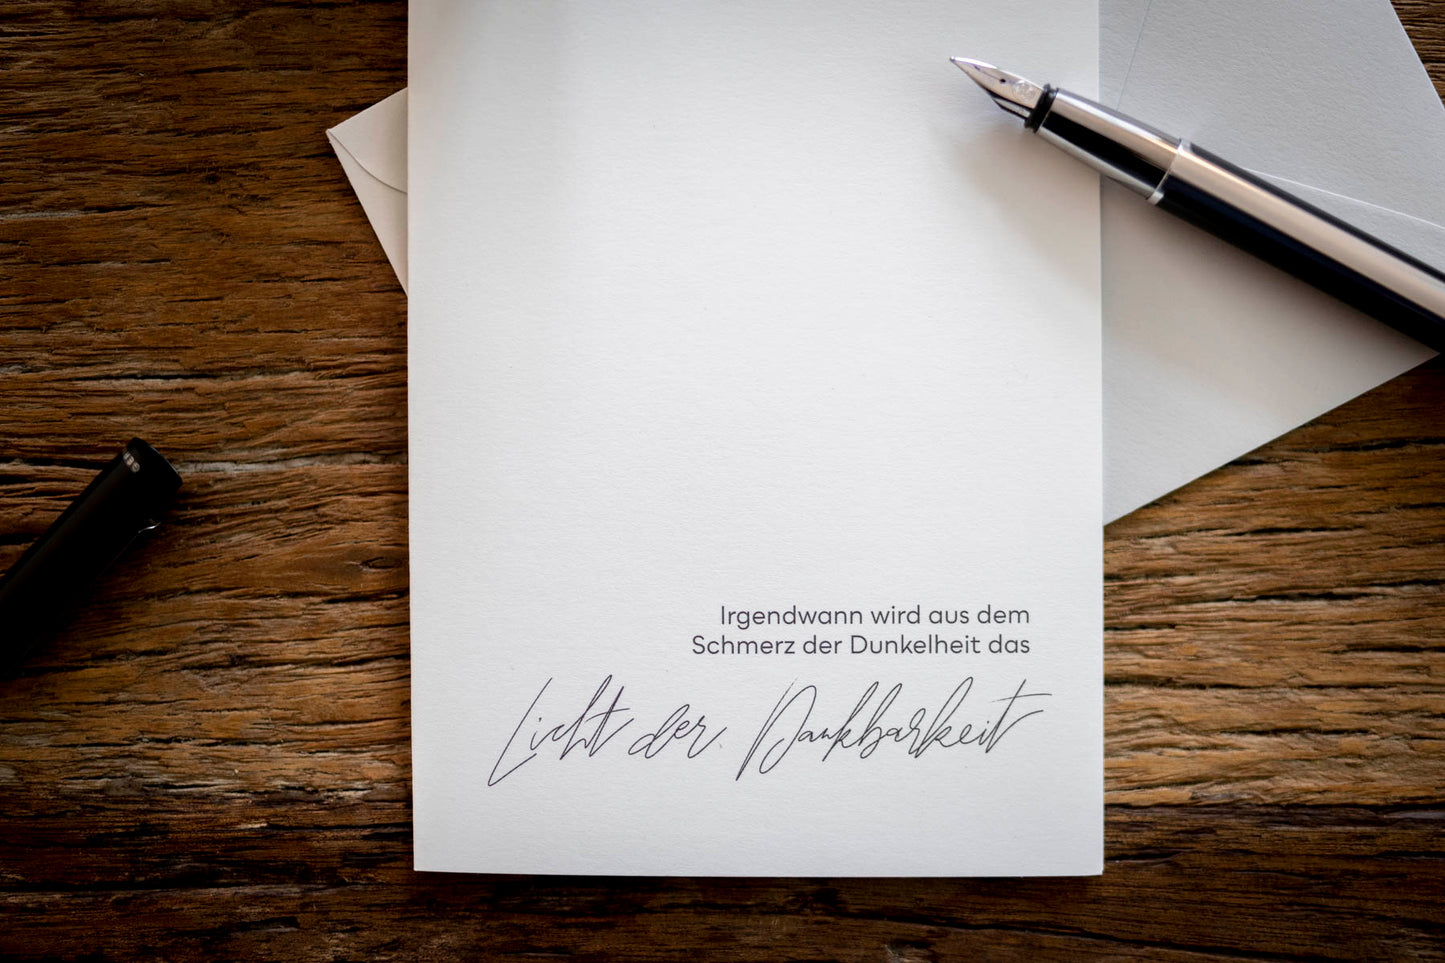 Irgendwann wird aus dem
Schmerz der Dunkelheit das
Licht der Dankbarkeit